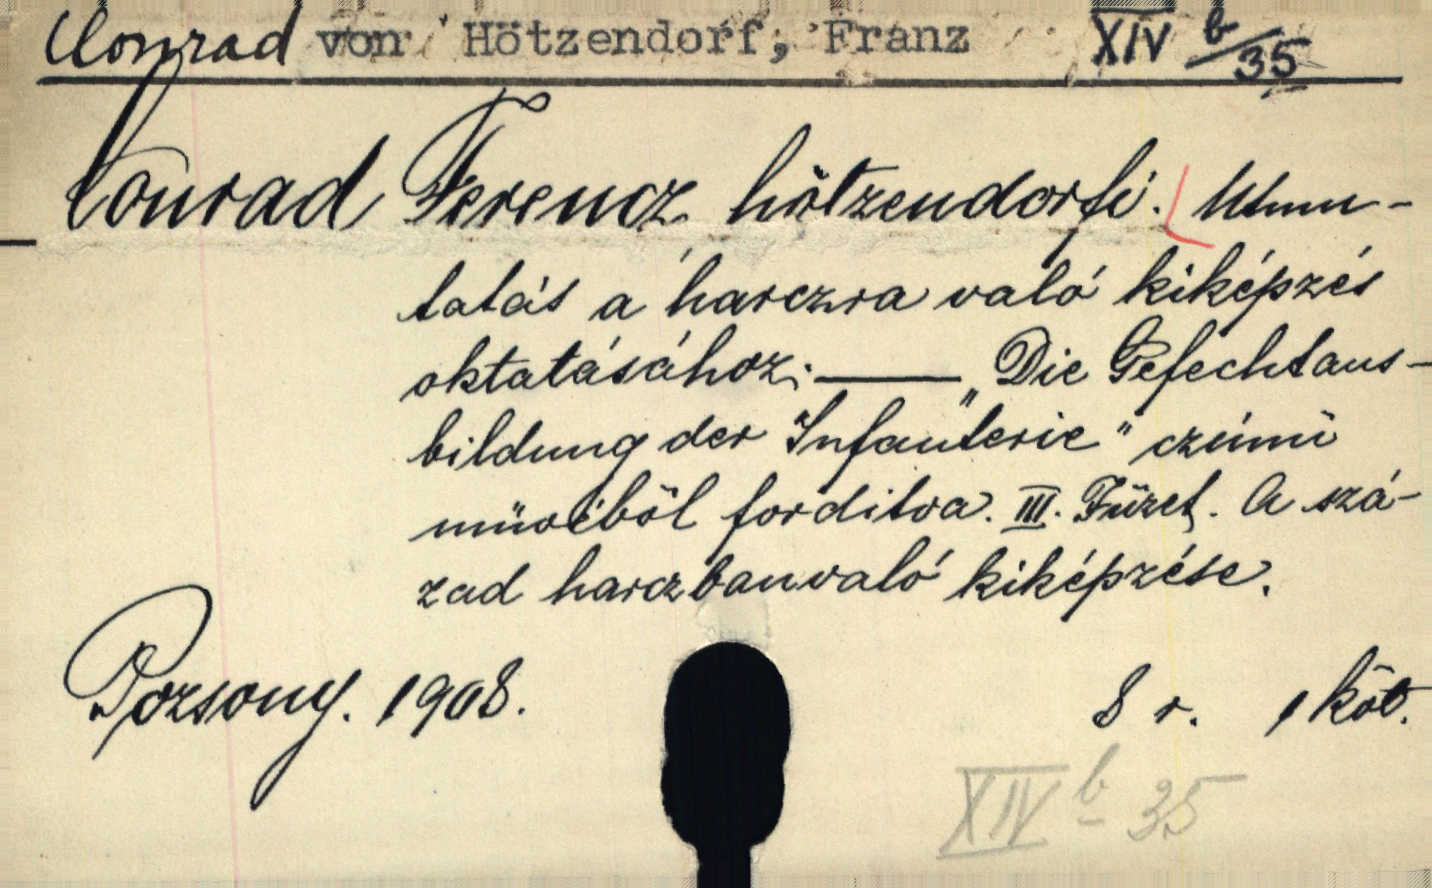 Conrad von Hötzendorf, Franz XIV b/35
Conrad Ferencz hötzendorfi. Utmu-
tatás a harczra való kiképzés
oktatásához; — „Die Gefechtaus-
bildung der Infanterie" czímü
müvéböl forditva. III. Füzet. A szá-
zad harczbanvaló kiképzése.
Pozsony. 1908. 8 r. 1 köt.
XIV b 35